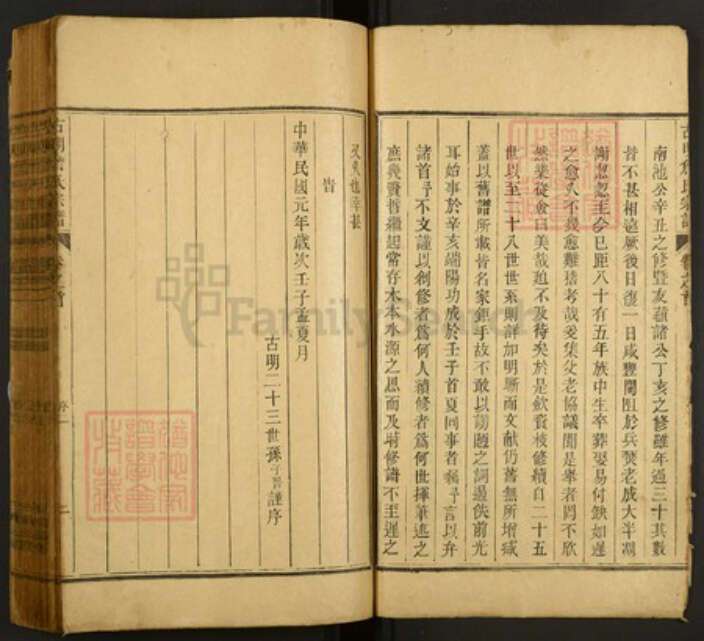 南池公辛丑之修暨友蘋諸公丁亥之修雖年過三十其數
皆不甚相遠厥後日復一日咸豐間阻於兵燹老成大半凋
謝忽忽至今已距八十有五年族中生卒葬娶易付缺如遲
之愈久不幾愈難稽考哉爰集父老協議聞是舉者罔不欣
然樂從僉曰美哉迨不及待矣於是歛費梭修續自二十五
世以至二十八世世系則詳加明晰而文献仍舊無所增減
蓋以舊譜所載皆名家鉅手故不敢以謭陋之詞過佚前光
耳始事於辛亥端陽功成於壬子首夏同事者 言以弁
諸首予不文謹以創修者為何人續修者為何世揮筆述之
庶幾賢哲繼起常存木本水源之思而及時修譜不至遲之
又久也幸甚
旹
中華民國元年歲次壬子孟夏月
古明二十三世孫子 謹序
古明 氏宗譜
卷之首
序
FamilySearch